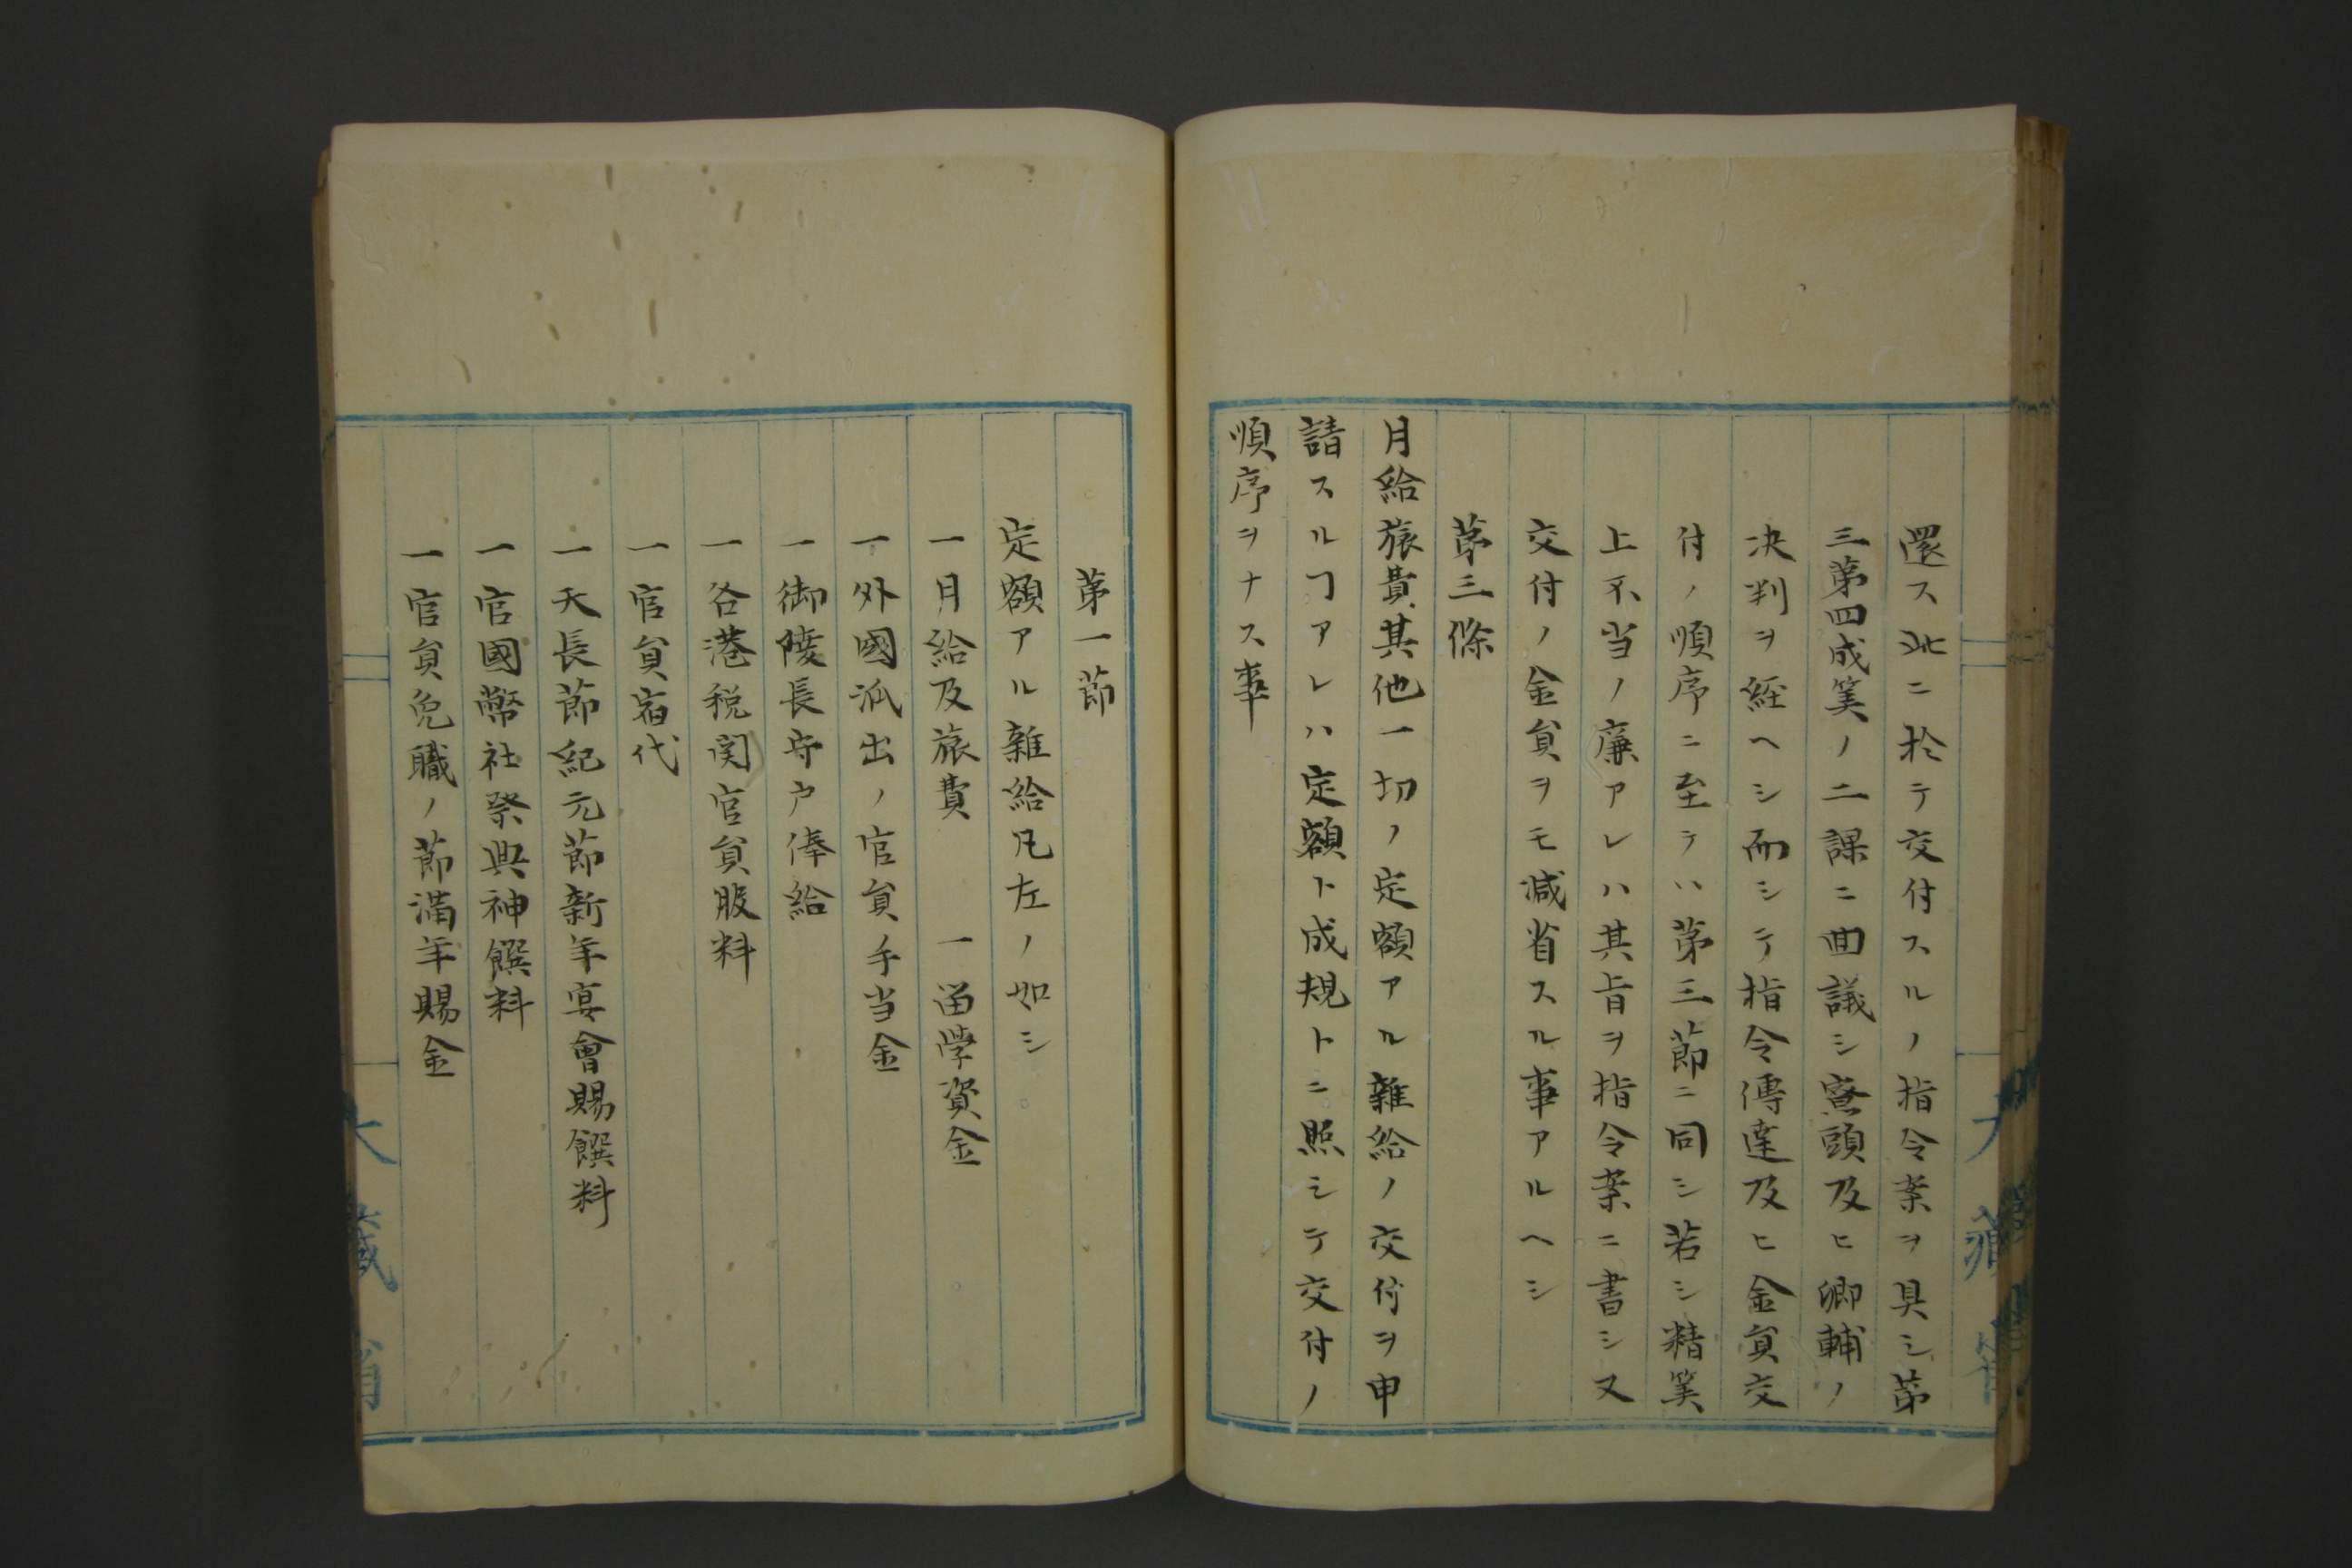 還ス此ニ於テ交付スルノ指令案ヲ具シ第
三第四成筭ノ二課ニ回議シ寮頭及ヒ卿輔ノ
决判ヲ経ヘシ而シテ指令傳達及ヒ金員交
付ノ順序ニ至テハ第三節ニ同シ若シ精筭
上不当ノ廉アレハ其旨ヲ指令案ニ書シ又
交付ノ金員ヲモ减省スル事アルヘシ
第三條
月給旅費其他一切ノ定額アル雜給ノ交付ヲ申
請スルヿアレハ定額ト成規トニ照シテ交付ノ
順序ヲナス事
第一節
定額アル雜給凡左ノ如シ
一月給及旅費　一留学資金
一外國派出ノ官員手当金
一御陵長守戸俸給
一各港税関官員服料
一官員宿代
一天長節紀元節新年宴會賜饌料
一官國幣社祭典神饌料
一官員免職ノ節満年賜金
大藏省